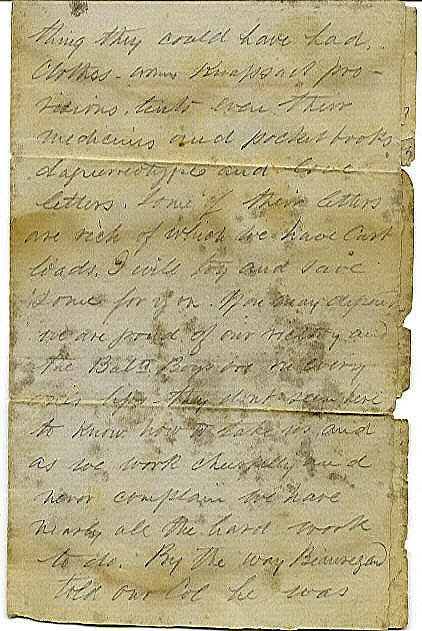 thing they could have had,
Clothes - arms Knapsacks pro-
visions, tents even their
medicines and pocket books
daguerreotypes and love
letters. Some of their letters
are rich of which we have Cart
loads. I will try and save
Some for you. You may depend
we are proud of our victory and
the Balto Boys are on every
ones lips - they dont seem here
to know how to take us and
as we work cheerfully and
never complain we have
nearly all the hard work
to do. By the way Beauregard
told our Col he was